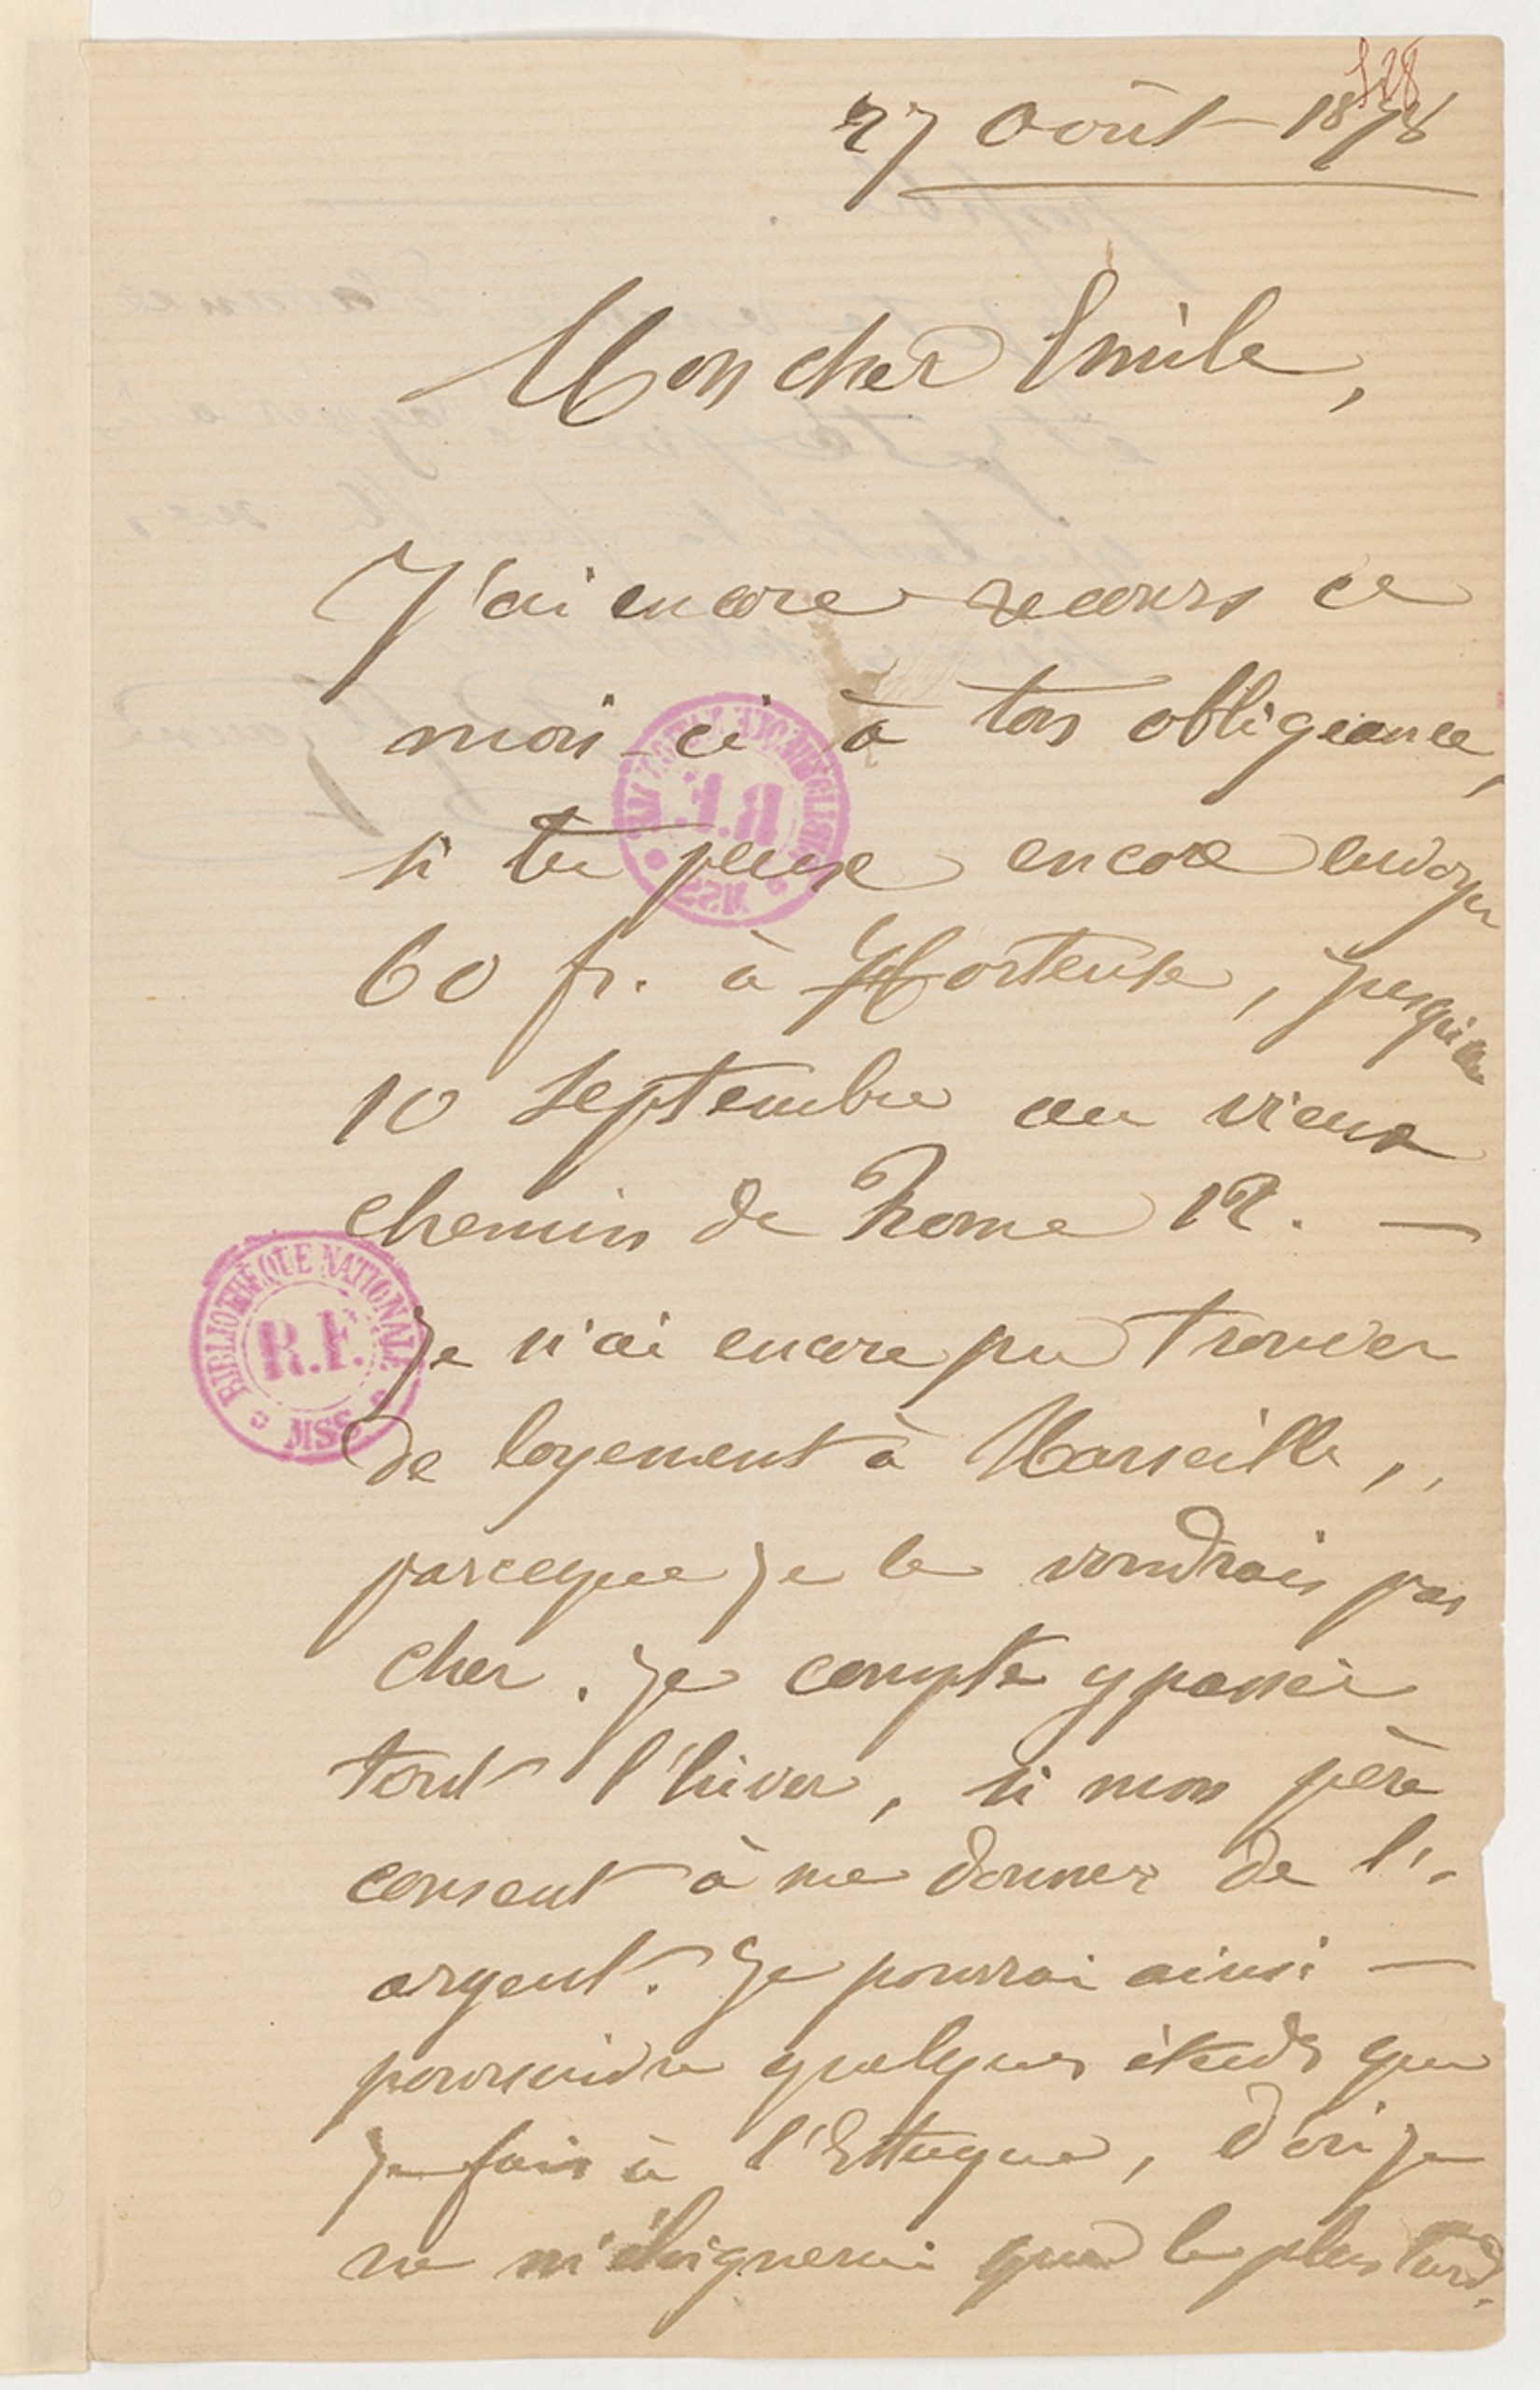 528
27 Août 1878
Mon cher Emile,
J'ai encore recours ce
mois-ci à ton obligeance,
si tu peux encore envoyer
60 fr. à Hortense, jusqu'au
10 septembre au vieux
chemin de Rome 12. —
Je n'ai encore pu trouver
de logement à Marseille,,
parceque je le voudrais pas
cher. Je compte y passer
tout l'hiver, si mon père
consent à me donner de l'-
argent. Je pourrai ainsi —
poursuivre quelques études que
je fais à l'Estaque, d'où je
ne m'éloignerai que le plus tard.
BIBLIOTHÈQUE NATIONALE
R.F.
MSS